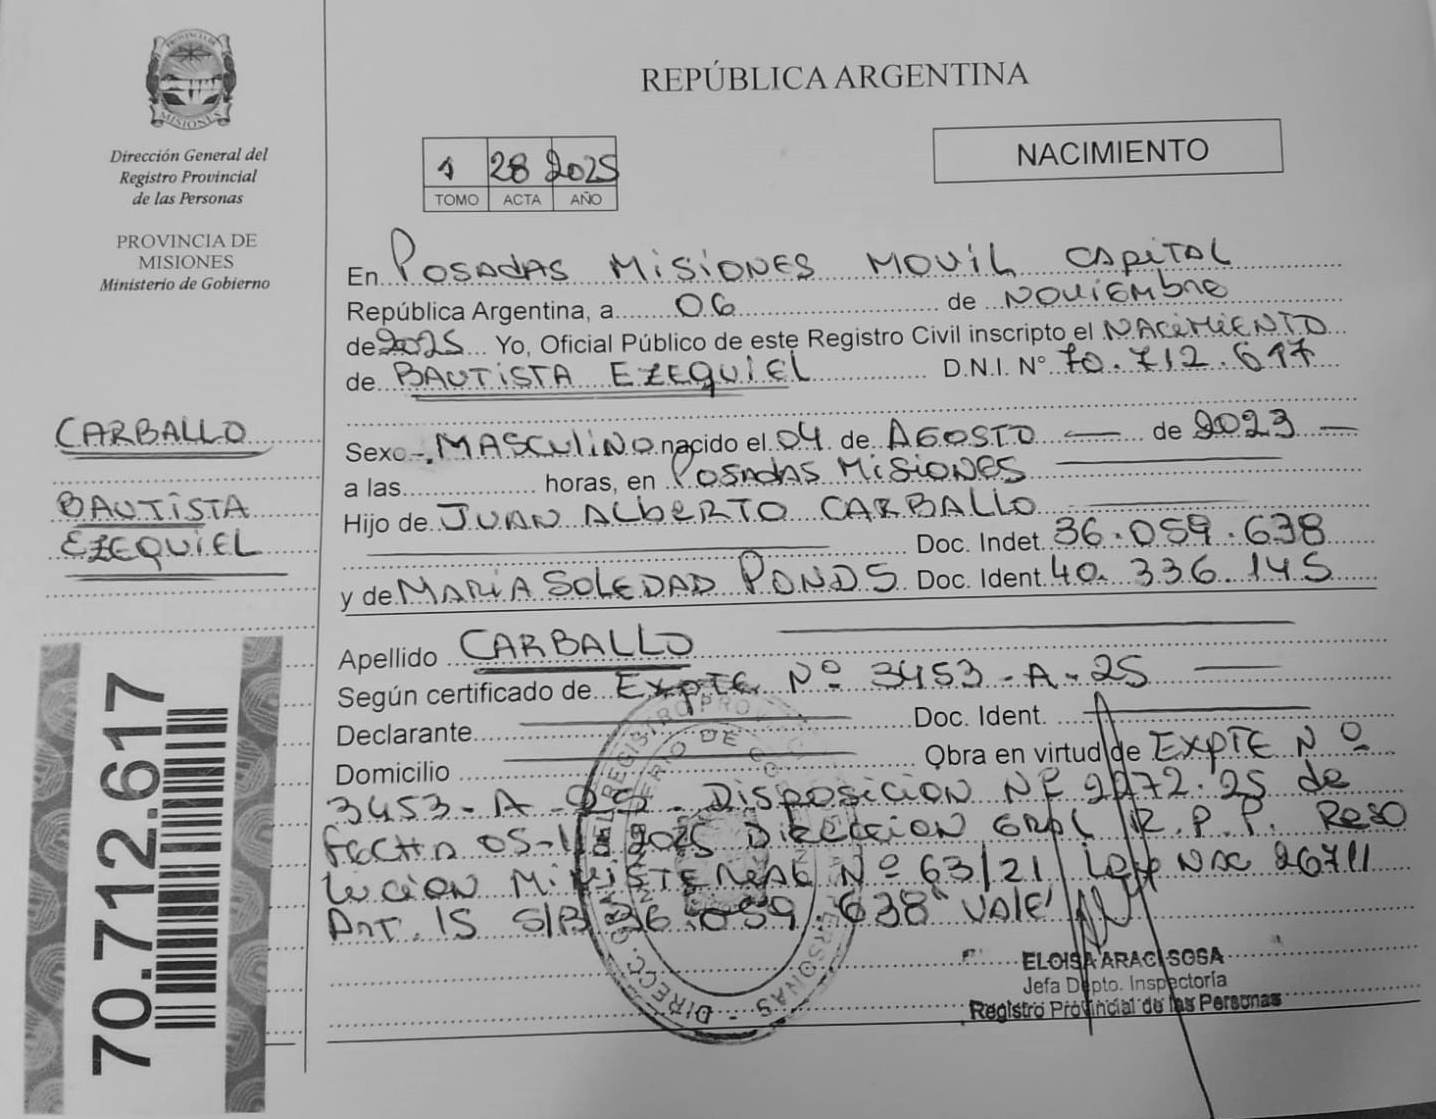 PROVINCIA DE
MISIONES
Dirección General del
Registro Provincial
de las Personas
PROVINCIA DE
MISIONES
Ministerio de Gobierno
CARBALLO
BAUTISTA
EZEQUIEL
70.712.617
REPÚBLICA ARGENTINA
1 28 2025
TOMO ACTA AÑO
NACIMIENTO
En POSADAS MISIONES MOVIL CAPITAL
República Argentina, a 06 de NOVIEMbre
de 2025 Yo, Oficial Público de este Registro Civil inscripto el NACIMIENTO
de BAUTISTA EZEQUIEL D.N.I. N° 70.712.617
Sexo MASCULINO nacido el 04 de AGOSTO de 2023
a las horas, en POSADAS MISIONES
Hijo de JUAN ALbERTO CARBALLO
Doc. Indet. 36.059.638
y de MARIA SOLEDAD PONDS Doc. Ident. 40.336.145
Apellido CARBALLO
Según certificado de EXPTE Nº 3453-A-25
Declarante Doc. Ident.
Domicilio Obra en virtud de EXPTE Nº
3453-A-25 - DISPOSICION Nº 2272.25 de
FECHA 05-11-2025 DIRECCION GRAL R.P.P. RESO
lucion MINISTERIAL Nº 63/21 Ley NAC 26711
ART. 15 S/B 36.059.638" VALE"
ELOISA ARACI SOSA
Jefa Dpto. Inspectoría
Registro Provincial de las Personas